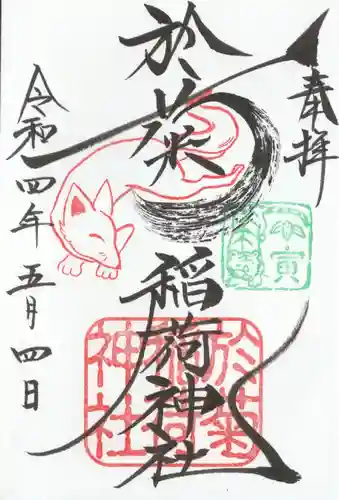 奉拝
於菊稲荷神社
令和四年五月四日
於菊稲荷神社
寅